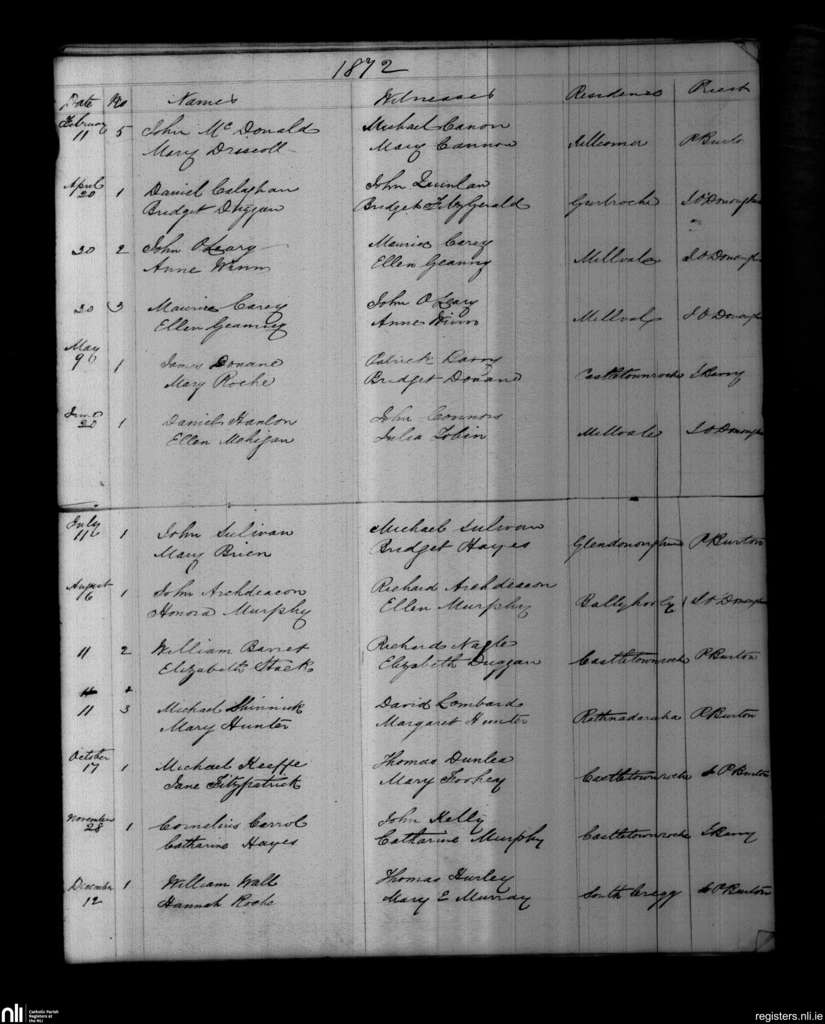 1872
Date No Names Witnesses Residence Priest
February
11 5 John McDonald Michael Canon Killcomer P Burton
Mary Driscoll Mary Cannon
April
20 1 Daniel Calaghan John Quinlan J O'Donoughue
Bridget Duggan Bridget FitzGerald
20 2 John O Leary Maurice Carey Millvale J O Donoughue
Anne Winn Ellen Geanny
20 3 Maurice Carey John O Leary Millvale J O Donoughue
Ellen Geanny Anne Winn
May
9 1 James Donane Patrick Barry Castletownroche
Mary Roche Bridget Donane
June
20 1 Daniel Hanlon John Connors Millvale J O Donoughue
Ellen Mohegan Julia Tobin
July
11 1 John Sulivan Michael Sulivan P Burton
Mary Brien Bridget Hayes
August
16 1 John Archdeacon Richard Archdeacon Ballyhooly J O Donoughue
Honora Murphy Ellen Murphy
11 2 William Barret Richard Nagle Castletownroche P Burton
Elizabeth Stack Elizabeth Duggan
11 3 Michael Shinnick David Lombard P Burton
Mary Hunter Margaret Hunter
October
17 1 Michael Keeffe Thomas Dunlea Castletownroche P Burton
Jane Fitzpatrick Mary Toohey
November
28 1 Cornelius Carrol John Kelly Castletownroche
Catharine Hayes Catharine Murphy
December
12 1 William Wall Thomas Hurley South Gregg P Burton
Hannah Roche Mary E Murray
nli Catholic Parish
Registers at
the NLI
registers.nli.ie